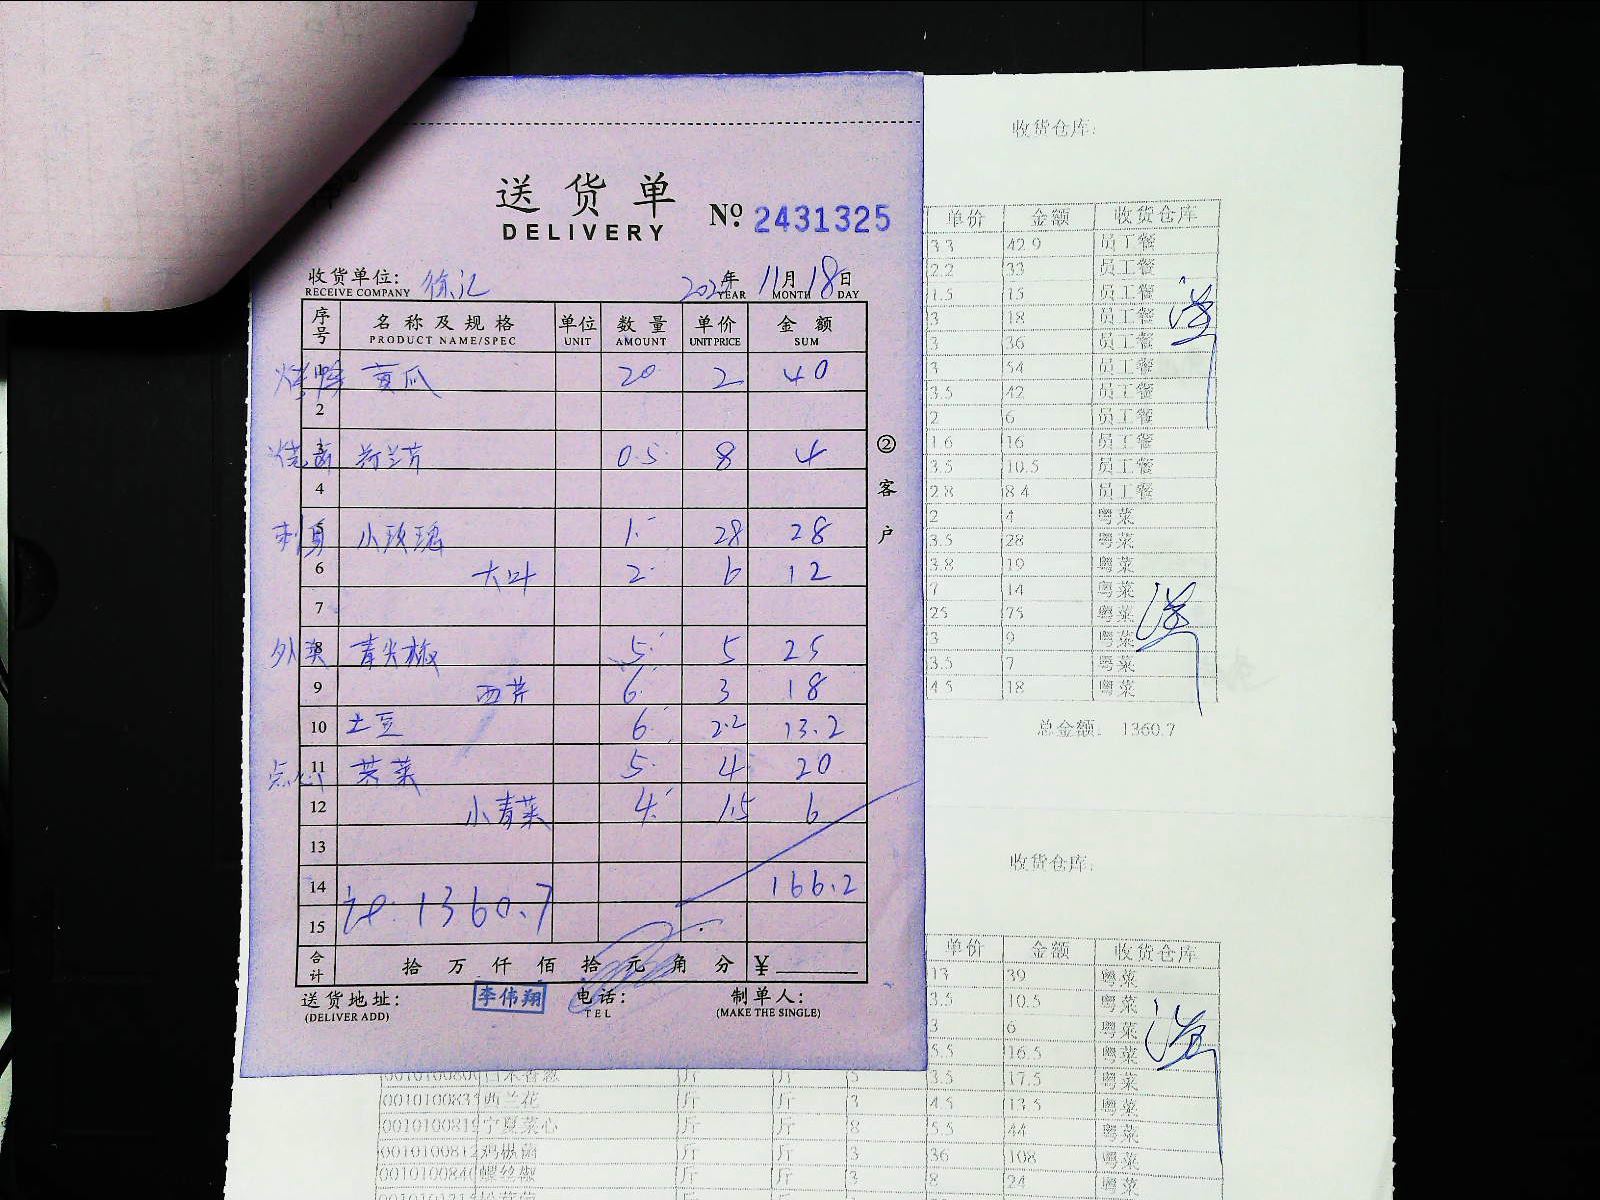 送货单
DELIVERY
No. 2431325
收货单位: 徐汇
RECEIVE COMPANY
年 11月18日
YEAR MONTH DAY
序号 名称及规格 单位 数量 单价 金额
PRODUCT NAME/SPEC UNIT AMOUNT UNIT PRICE SUM
1 烤鸭 黄瓜 20 2 40
2
3 荷兰芹 0.5 8 4
4
5 刺身 小玫瑰 1 28 28
6 大叶 2 6 12
7
8 外卖 青尖椒 5 5 25
9 西芹 6 3 18
10 土豆 6 2.2 13.2
11 点心 芹菜 5 4 20
12 小青菜 4 1.5 6
13
14 166.2
15 1360.7
合计 拾万仟佰拾元角分 ¥
送货地址: 李伟翔 电话: 制单人:
(DELIVER ADD) TEL (MAKE THE SINGLE)
②客户
收货仓库:
单价 金额 收货仓库
3.3 42.9 员工餐
2.2 33 员工餐
1.5 15 员工餐
3 18 员工餐
3 36 员工餐
3 54 员工餐
3.5 42 员工餐
2 6 员工餐
1.6 16 员工餐
3.5 10.5 员工餐
2.8 8.4 员工餐
2 4 粤菜
3.5 28 粤菜
3.8 19 粤菜
7 14 粤菜
25 75 粤菜
3 9 粤菜
3.5 7 粤菜
4.5 18 粤菜
总金额: 1360.7
收货仓库:
单价 金额 收货仓库
13 39 粤菜
3.5 10.5 粤菜
3 6 粤菜
5.5 16.5 粤菜
斤 斤 5 3.5 17.5 粤菜
西兰花 斤 斤 3 4.5 13.5 粤菜
宁夏菜心 斤 斤 8 5.5 44 粤菜
鸡枞菌 斤 斤 3 36 108 粤菜
螺丝椒 斤 斤 3 8 24 粤菜